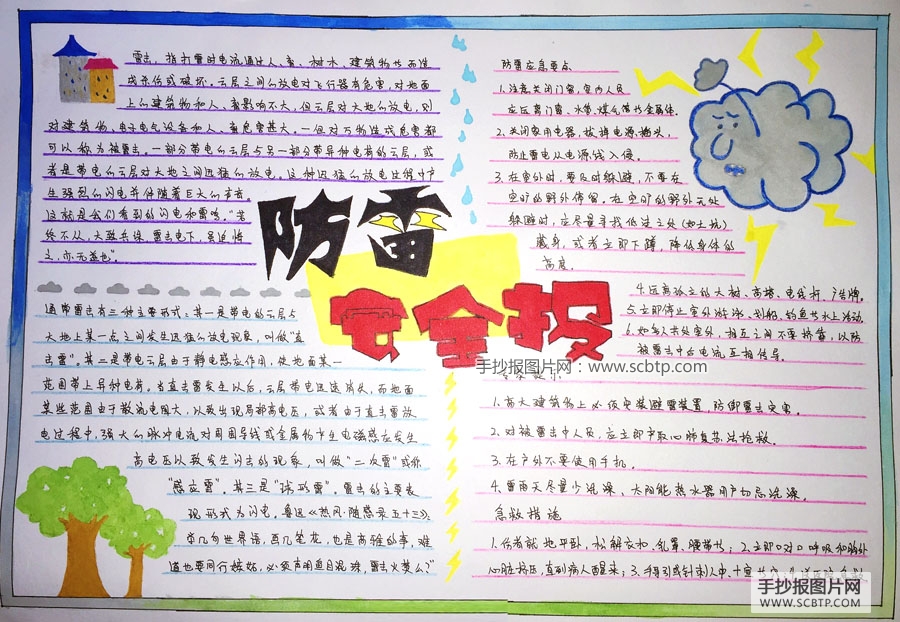 雷击，指打雷时电流通过人、畜、树木、建筑物等而造
成杀伤或破坏。云层之间的放电对飞行器有危害，对地面
上的建筑物和人、畜影响不大，但云层对大地的放电，则
对建筑物、电子电气设备和人、畜危害甚大。一但对万物造成危害都
可以称为被雷击。一部分带电的云层与另一部分带异种电荷的云层，或
者是带电的云层对大地之间迅猛的放电，这种迅猛的放电过程中产
生强烈的闪电并伴随着巨大的声音。
这就是我们看到的闪电和雷鸣。"若
终不从，大难兵诛，雷击电下，虽追悔
之，亦无益也"。
防雷
安全报
通常雷击有三种主要形式：其一是带电的云层与
大地上某一点之间发生迅猛的放电现象，叫做"直
击雷"。其二是带电云层由于静电感应作用，使地面某一
范围带上异种电荷。当直击雷发生以后，云层带电迅速消失，而地面
某些范围由于散流电阻大，以致出现局部高电压，或者由于直击雷放
电过程中，强大的脉冲电流对周围导线或金属物产生电磁感应发生
高电压以致发生闪击的现象，叫做"二次雷"或称
"感应雷"。其三是"球形雷"。雷击的主要表
现形式为闪电。鲁迅《热风·随感录五十三》：
学几句世界语，画几笔花，也是高雅的事，难
道也要同行嫉妒，必须声明鱼目混珠，雷击火焚么？"
防雷应急要点
1.注意关闭门窗，室内人员
应远离门窗、水管、煤气管等金属体。
2.关闭家用电器，拔掉电源插头，
防止雷电从电源线入侵。
3.在室外时，要及时躲避，不要在
空旷的野外停留。在空旷的野外无处
躲避时，应尽量寻找低洼之处（如土坑）
藏身，或者立即下蹲，降低身体的
高度。
4.远离孤立的大树、高塔、电线杆、广告牌。
5.立即停止室外游泳、划船、钓鱼等水上活动。
6.如多人共处室外，相互之间不要挤靠，以防
被雷击中后电流互相传导。
手抄报图片网：www.scbtp.com
1.高大建筑物上必须安装避雷装置，防御雷击灾害。
2.对被雷击中人员，应立即采取心肺复苏法抢救。
3.在户外不要使用手机。
4.雷雨天尽量少洗澡、太阳能热水器用户切忌洗澡。
急救措施
1.伤者就地平卧，松解衣扣、乳罩、腰带等；2.立即口对口呼吸和胸外
心脏挤压，直到病人醒来；3.手导引或针刺人中、十宣
手抄报图片网
WWW.SCBTP.COM